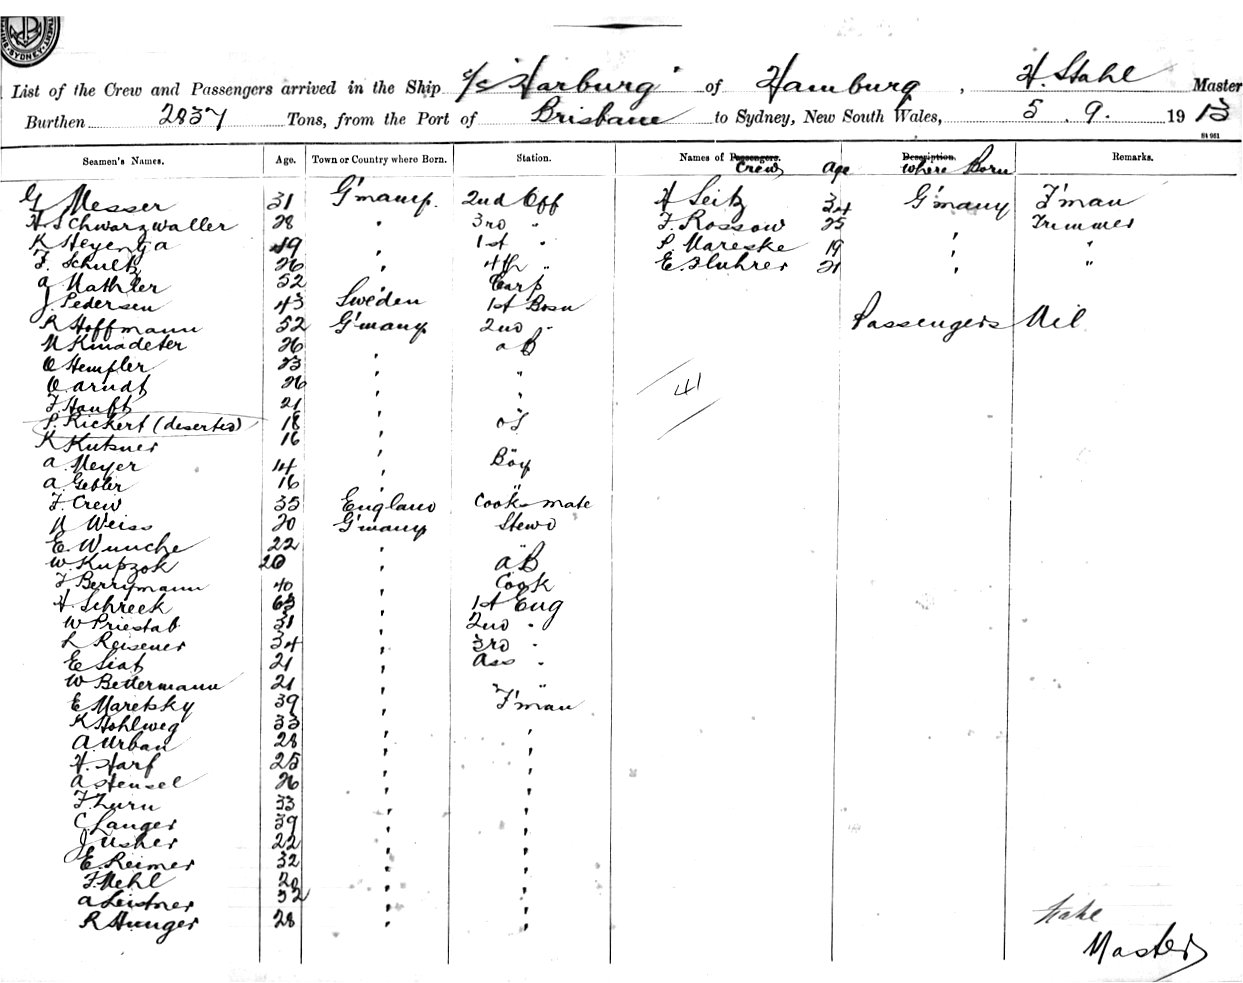 SYDNEY
List of the Crew and Passengers arrived in the Ship S/S "Harburg" of Hamburg, H. Stahl Master
Burthen 2837 Tons, from the Port of Brisbane to Sydney, New South Wales, 5. 9. 1913
Seamen's Names. Age. Town or Country where Born. Station. Names of Passengers. Crew Age Description. Where Born Remarks.
G Messer 31 G'many. 2nd Off H Seitz 34 G'many F'man
H. Schwarzwaller 28 " 3rd " F. Rossow 25 " Trimmer
K Heyenga 49 " 1st " P. Mareske 19 " "
F. Schultz 26 " 4th " E. Fluhrer 21 " "
A Mathler 52 " Carp
J. Pedersen 43 Sweden 1st Bosn
R Hoffmann 52 G'many 2nd " Passengers Nil
N Kmadeter 26 " AB
O Hempler 23 " "
O Arndt 26 " "
F. Hauft 21 "
P. Rickert (deserted) 18 " OS
K Kutsner 16 " "
A. Meyer 14 " Boy
A. Gebler 16 " "
F. Crew 35 England Cooks mate
N Weiss 20 G'many Stewd
E. Wunche 22 " "
W. Kupzok 20 " AB
F Berrymann 40 " Cook
H. Schreek 63 " 1st Eng
W Priestab 31 " 2nd "
L Reisener 34 " 3rd "
E Siat 21 " Ass "
W Bettermann 21 " "
E Maretsky 39 " F'man
K Hohlweg 33 " "
A. Urban 28 " "
H. Harf 25 " "
A Hensel 26 " "
F. Zurn 33 " "
C Langer 39 " "
J Usher 22 " "
E. Reimer 32 " "
F. Mehl 28 " "
A Leistner 32 " "
R Hunger 28 " "
41
Stahl
Master